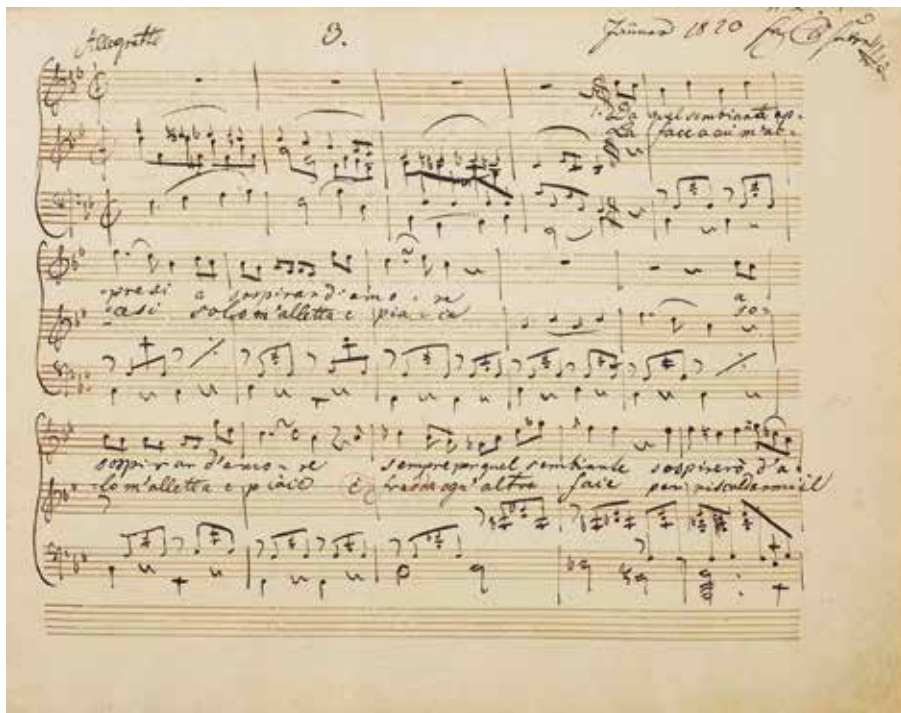 Allegretto 3. Jänner 1820
Da quel sembiante ap-
La face a cui m'ac-
-presi a sospirar d'amo - re a
-cesi solo m'alletta e pia - ce so-
sospirar d'amo - re sempre per quel sembiante sospirerò d'a-
-lo m'alletta e piace è ogn'altra face per riscaldarmi il